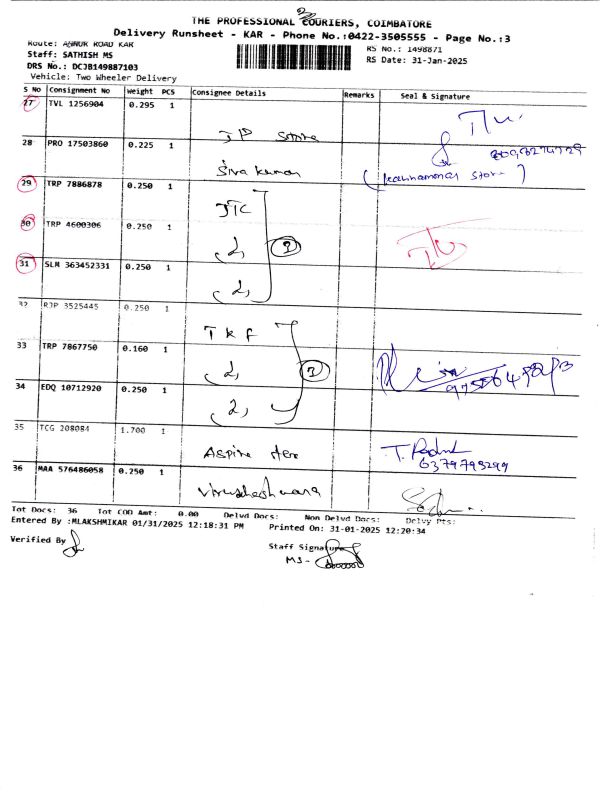 THE PROFESSIONAL COURIERS, COIMBATORE
Delivery Runsheet - KAR - Phone No.:0422-3505555 - Page No.:3
Route: AVNUR ROAD KAR
Staff: SATHISH MS
RS No.: 1498871
DRS No.: DCJB149887103
RS Date: 31-Jan-2025
Vehicle: Two Wheeler Delivery
S No Consignment No Weight PCS Consignee Details Remarks Seal & Signature
27 TVL 1256904 0.295 1 JP Store
28 PRO 17503860 0.225 1 Siva Kumar
29 TRP 7886878 0.250 1 JTC
30 TRP 4600306 0.250 1
31 SLM 363452331 0.250 1
32 RJP 3525445 0.250 1 TKF
33 TRP 7867750 0.160 1
34 EDQ 10712920 0.250 1
35 TCG 208084 1.700 1 Aspire
6379793299
36 MAA 576486058 0.250 1
Tot Docs: 36 Tot COD Amt: 0.00 Delvd Docs: Non Delvd Docs: Delvy Pts:
Entered By :MLAKSHMIKAR 01/31/2025 12:18:31 PM Printed On: 31-01-2025 12:20:34
Verified By
Staff Signature
MS-